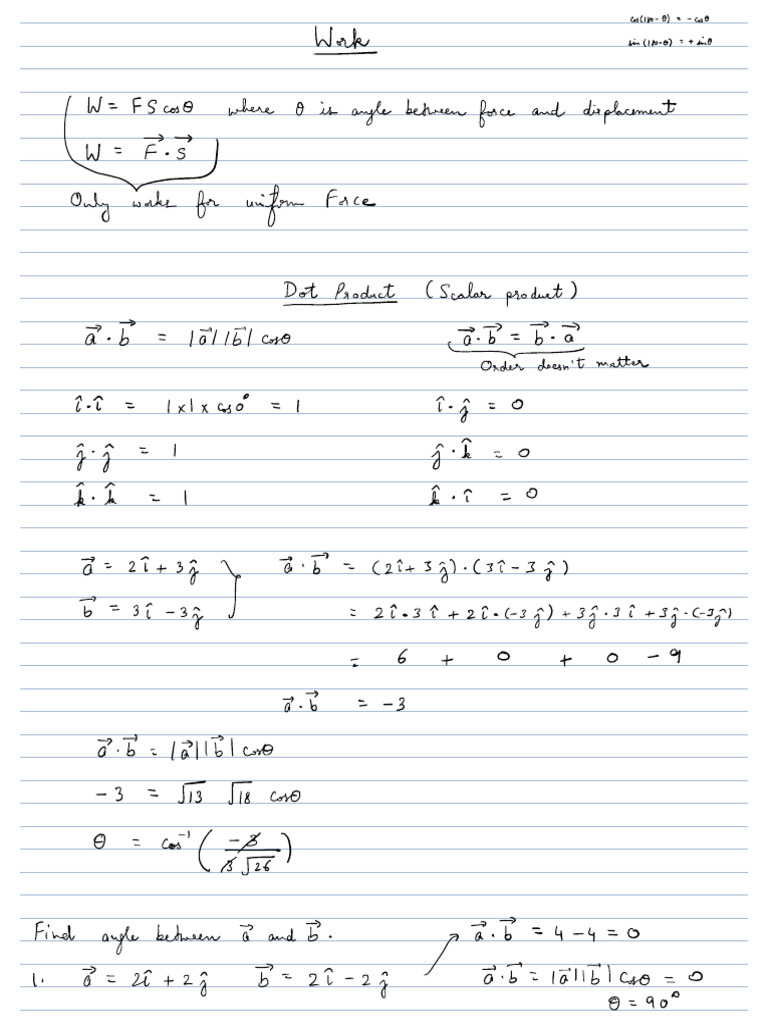 cos(180-θ) = -cosθ
Work
sin(180-θ) = +sinθ
W = FS cosθ where θ is angle between force and displacement
W = F⃗ · S⃗
Only works for uniform Force
Dot Product (Scalar product)
a⃗ · b⃗ = |a⃗| |b⃗| cosθ a⃗ · b⃗ = b⃗ · a⃗
Order doesn't matter
î · î = 1 x 1 x cos0° = 1 î · ĵ = 0
ĵ · ĵ = 1 ĵ · k̂ = 0
k̂ · k̂ = 1 k̂ · î = 0
a⃗ = 2î + 3ĵ a⃗ · b⃗ = (2î + 3ĵ) · (3î - 3ĵ)
b⃗ = 3î - 3ĵ = 2î · 3î + 2î · (-3ĵ) + 3ĵ · 3î + 3ĵ · (-3ĵ)
= 6 + 0 + 0 - 9
a⃗ · b⃗ = -3
a⃗ · b⃗ = |a⃗| |b⃗| cosθ
-3 = √13 √18 cosθ
θ = cos⁻¹ (-3 / 3√26)
Find angle between a⃗ and b⃗. a⃗ · b⃗ = 4 - 4 = 0
1. a⃗ = 2î + 2ĵ b⃗ = 2î - 2ĵ a⃗ · b⃗ = |a⃗| |b⃗| cosθ = 0
θ = 90°